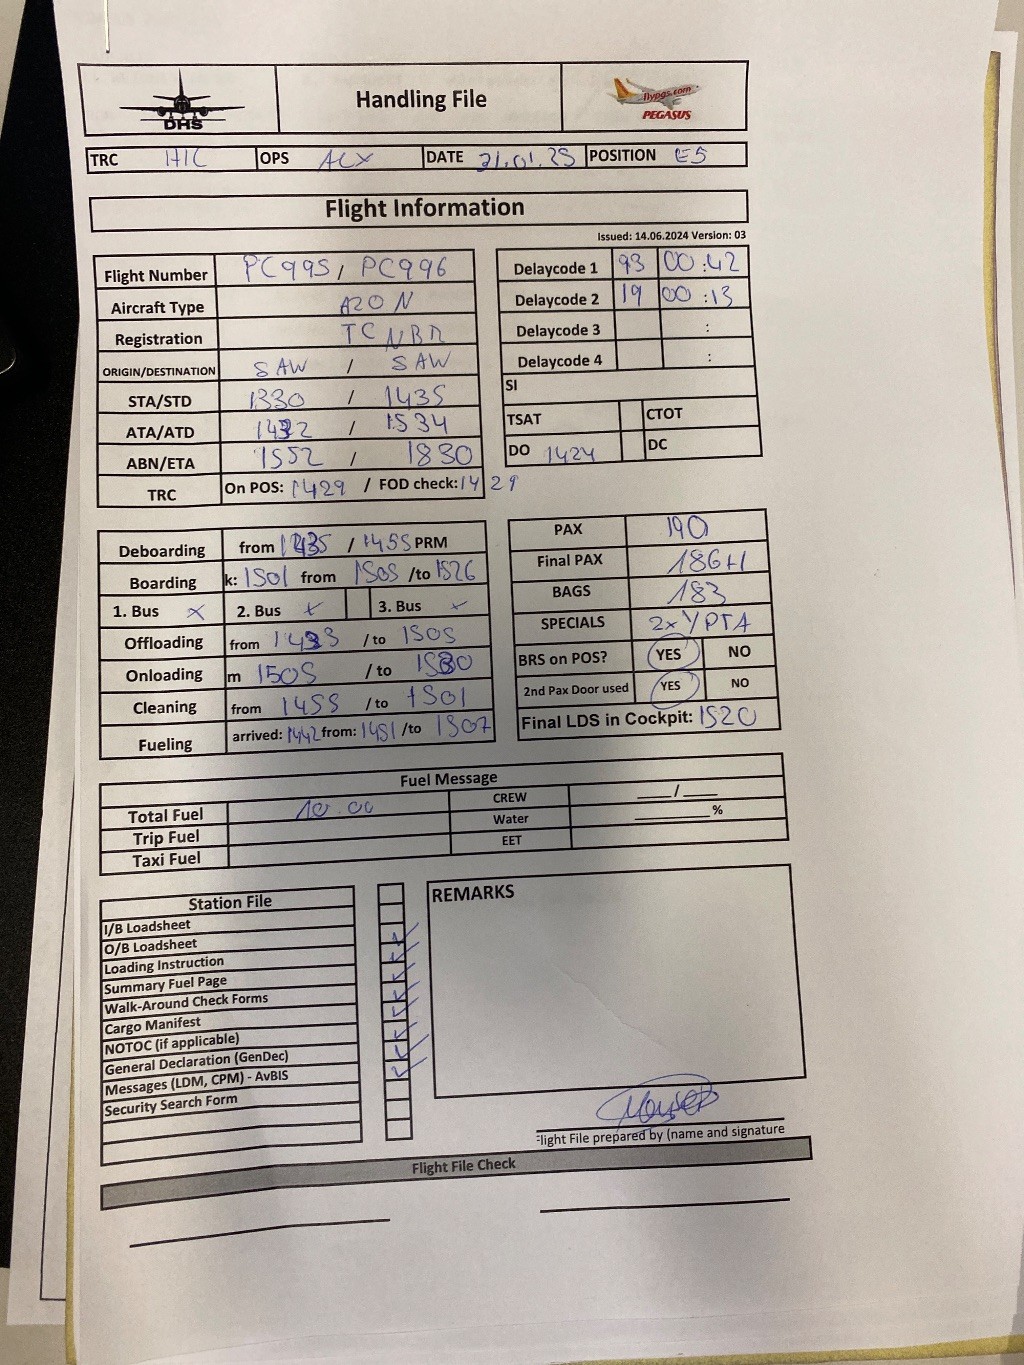 DHS
Handling File
flypgs.com
PEGASUS
TRC HIC OPS ACX DATE 21.01.25 POSITION E5
Flight Information
Issued: 14.06.2024 Version: 03
Flight Number PC995 / PC996
Aircraft Type A20N
Registration TC NBR
ORIGIN/DESTINATION SAW / SAW
STA/STD 1330 / 1435
ATA/ATD 1422 / 1534
ABN/ETA 1552 / 1830
TRC On POS: 1429 / FOD check: 14 29
Delaycode 1 93 00:42
Delaycode 2 19 00:13
Delaycode 3 :
Delaycode 4 :
SI
TSAT CTOT
DO 1424 DC
Deboarding from 1435 / 1455 PRM
Boarding k: 1501 from 1505 /to 1526
1. Bus x 2. Bus x 3. Bus
Offloading from 1433 / to 1505
Onloading m 1505 / to 1530
Cleaning from 1455 / to 1501
Fueling arrived: 1442 from: 1451 /to 1507
PAX 190
Final PAX 186+1
BAGS 183
SPECIALS 2x YPTA
BRS on POS? YES NO
2nd Pax Door used YES NO
Final LDS in Cockpit: 1520
Fuel Message
Total Fuel 10.00 CREW ___/___
Trip Fuel Water ______%
Taxi Fuel EET
Station File
I/B Loadsheet
O/B Loadsheet
Loading Instruction
Summary Fuel Page
Walk-Around Check Forms
Cargo Manifest
NOTOC (if applicable)
General Declaration (GenDec)
Messages (LDM, CPM) - AvBIS
Security Search Form
REMARKS
Flight File prepared by (name and signature
Flight File Check